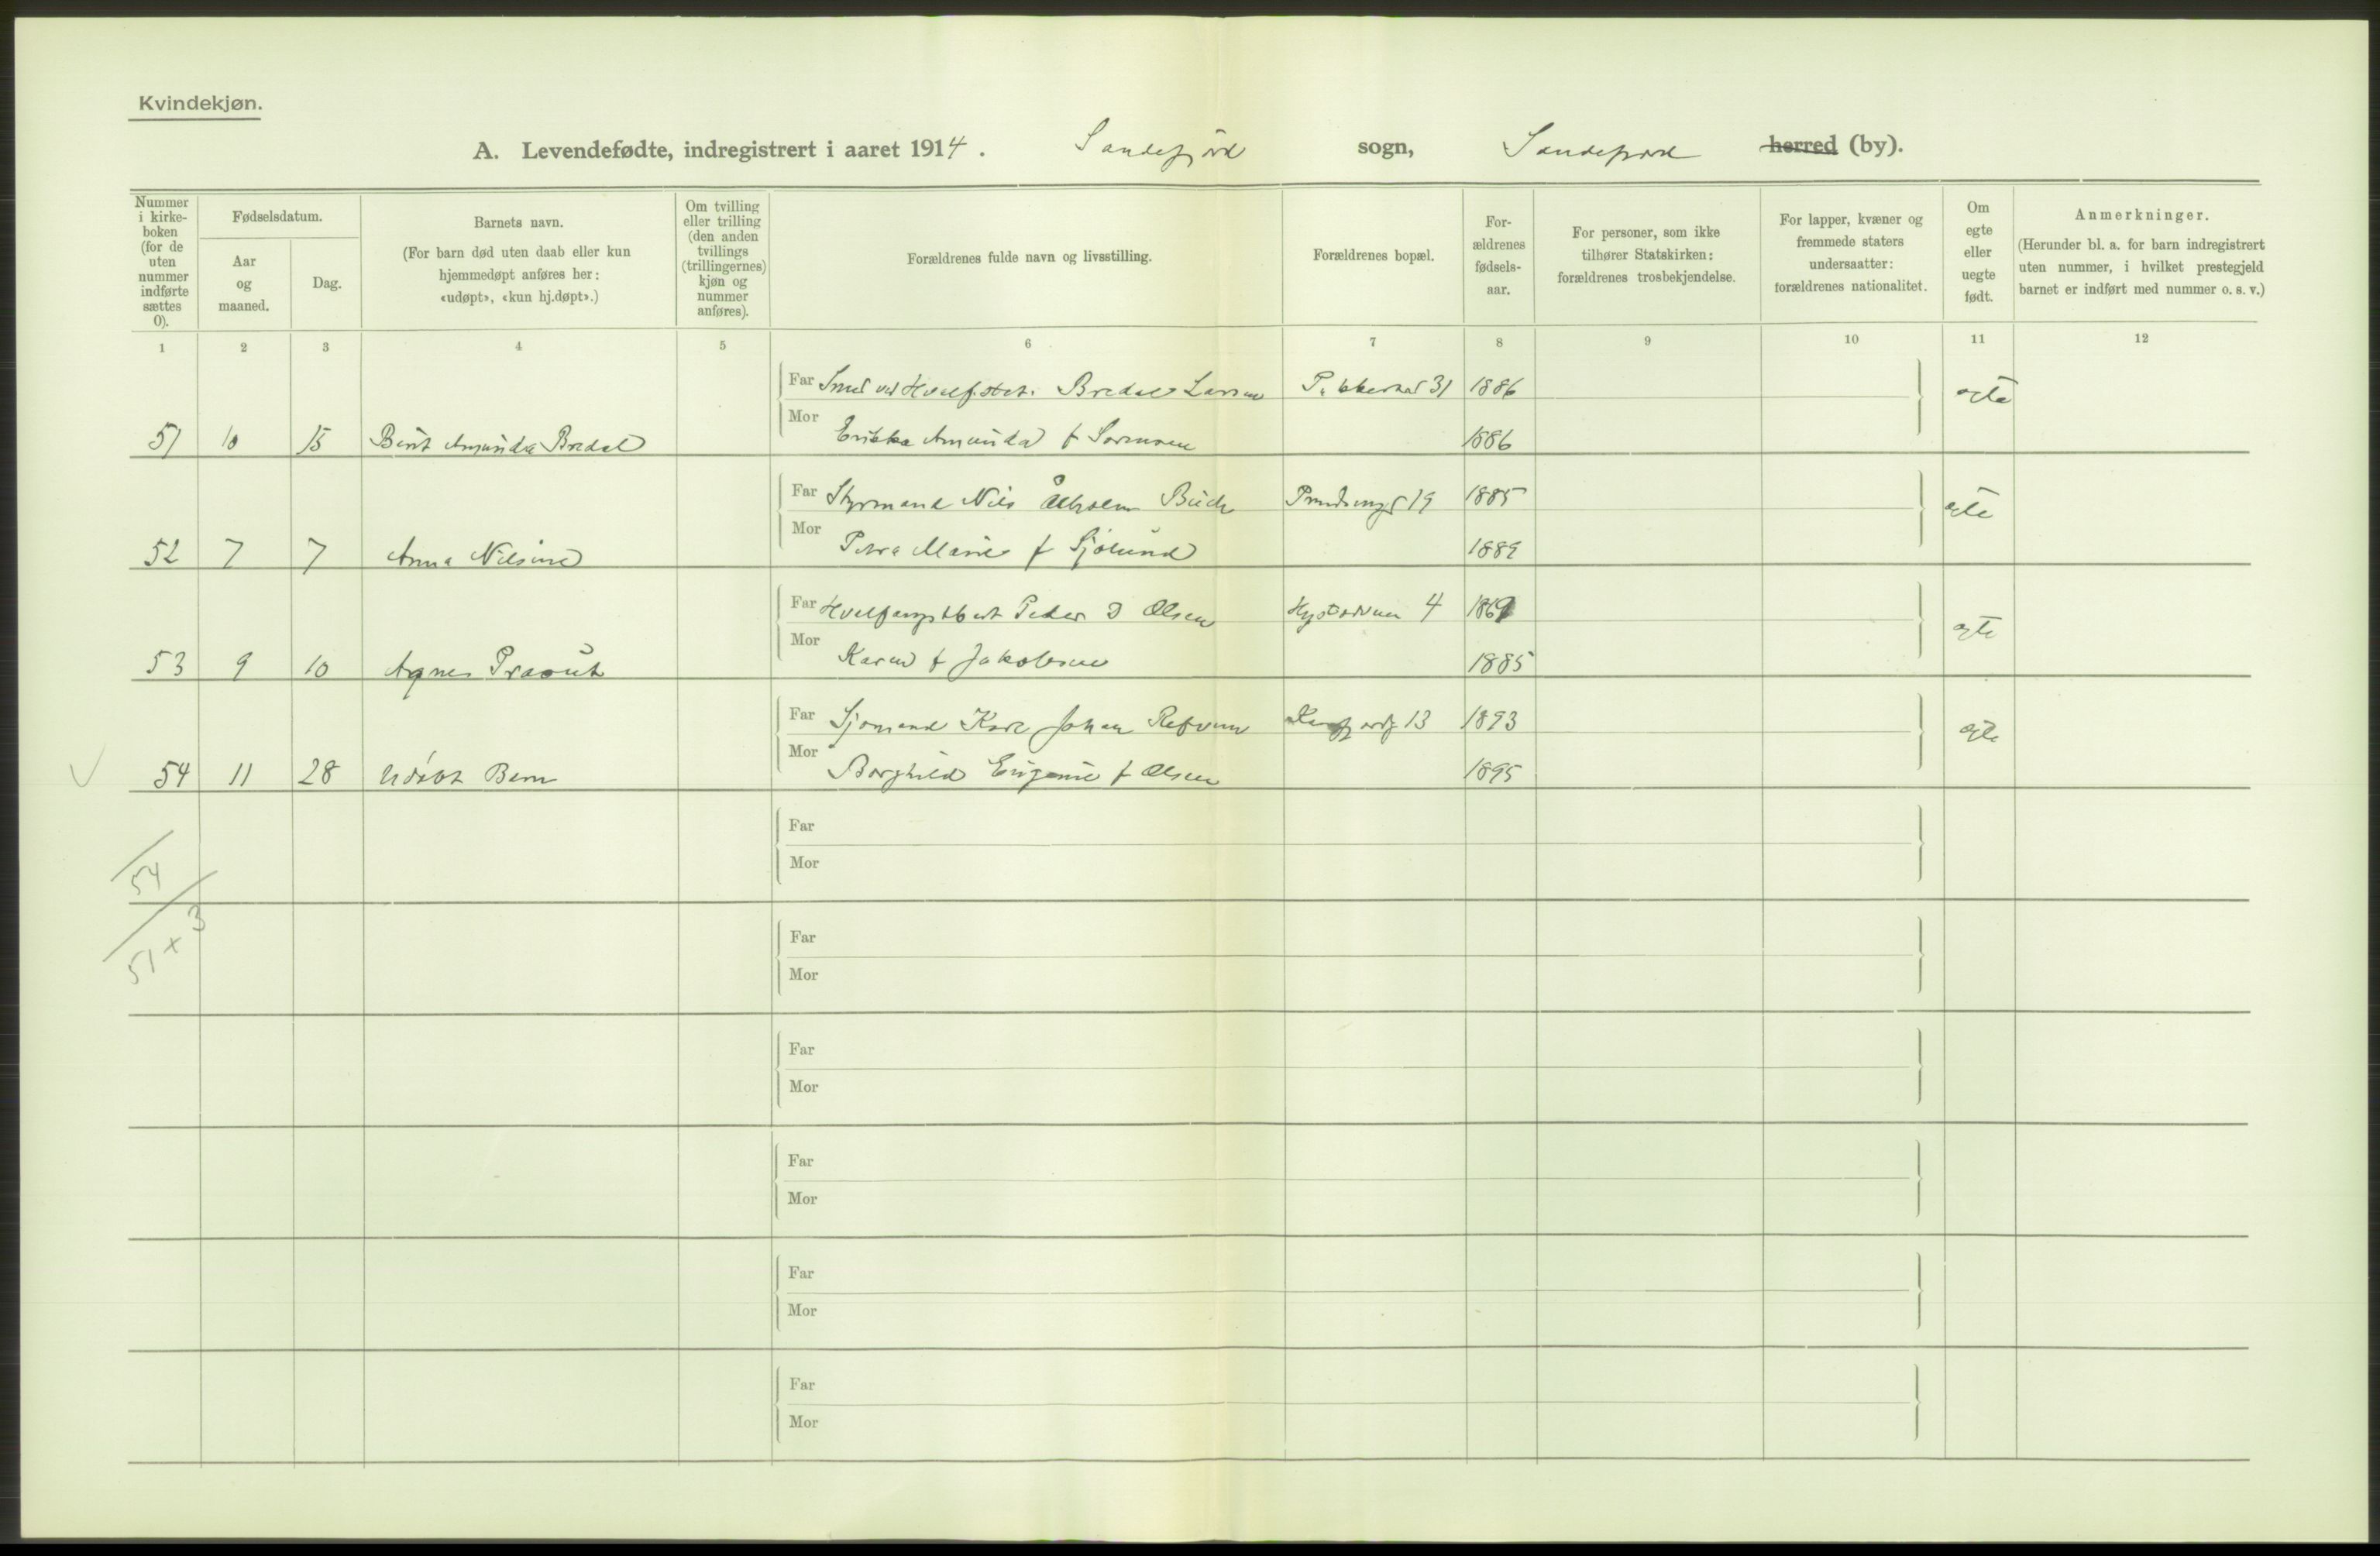 Kvindekjøn.
A. Levendefødte, indregistrert i aaret 1914. Sandefjord sogn, Sandefjord herred (by).
Nummer i kirke-boken (for de uten nummer indførte sættes 0).
Fødselsdatum.
Aar og maaned.
Dag.
Barnets navn.
(For barn død uten daab eller kun hjemmedøpt anføres her: «udøpt», «kun hj.døpt».)
Om tvilling eller trilling (den anden tvillings (trillingernes) kjøn og nummer anføres).
Forældrenes fulde navn og livsstilling.
Forældrenes bopæl.
For-ældrenes fødsels-aar.
For personer, som ikke tilhører Statskirken: forældrenes trosbekjendelse.
For lapper, kvæner og fremmede staters undersaatter: forældrenes nationalitet.
Om egte eller uegte født.
Anmerkninger.
(Herunder bl. a. for barn indregistrert uten nummer, i hvilket prestegjeld barnet er indført med nummer o. s. v.)
1 2 3 4 5 6 7 8 9 10 11 12
Far Smed ved Bredal Larsen 31 1886 egte
Mor Amunda f Sorensen 1886
51 10 15 Amunda Bredal
Far Styrmand Nils 19 1885 egte
Mor Petra Marie f Sjölund 1889
52 7 7 Anna Nilsine
Far Peder Olsen 4 egte
Mor Karen f Jakobsen 1885
53 9 10 Agnes
Far Sjömand Karl Johan 13 1893 egte
Mor Borghild Eugenie f Olsen 1895
54 11 28 Udöbt Barn
Far
Mor
54
51 + 3
Far
Mor
Far
Mor
Far
Mor
Far
Mor
Far
Mor